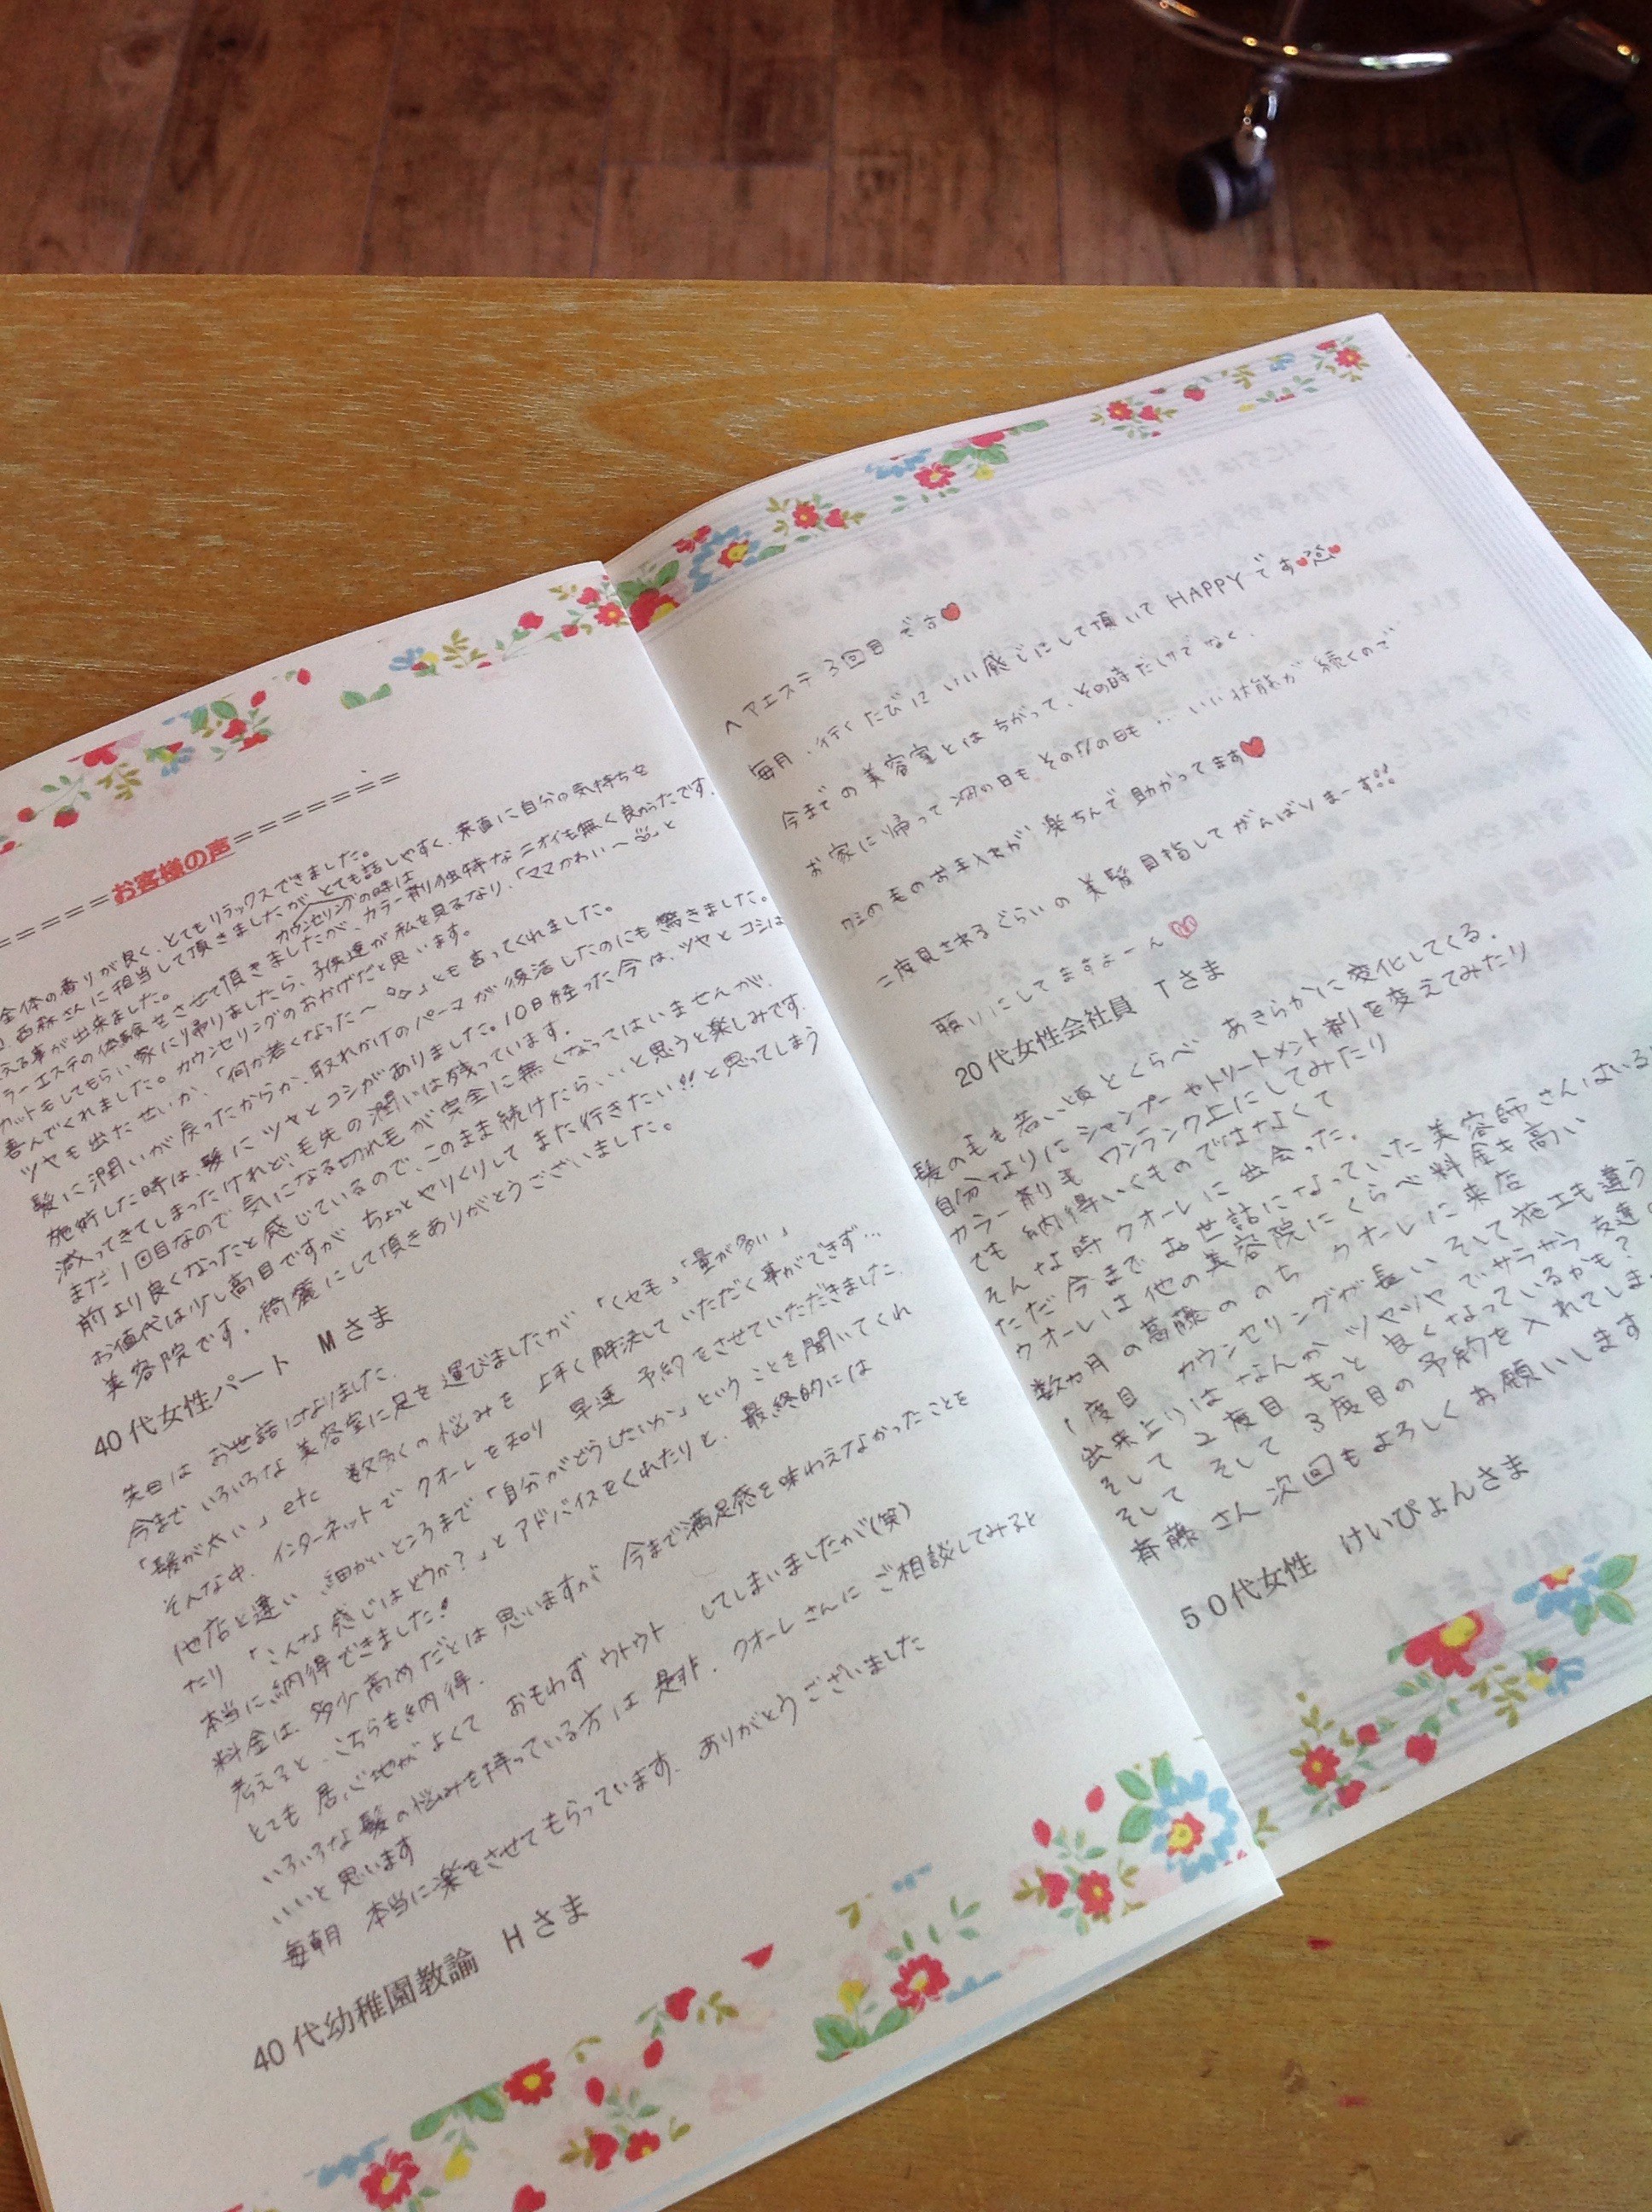 =====お客様の声=======
全体の香りが良く、とてもリラックスできました。
西森さんに担当して頂きましたが、とても話しやすく、素直に自分の気持ちを
える事が出来ました。 カウンセリングの時は
ラーエステの体験をさせて頂きましたが、カラー剤独特なニオイも無く良かったです。
カットもしてもらい家に帰りましたら、子供達が私を見るなり、「ママかわい〜」と
喜んでくれました。カウンセリングのおかげだと思います。
ツヤも出たせいか、「何か若くなった〜」とも言ってくれました。
髪に潤いが戻ったからか、取れかけのパーマが復活したのにも驚きました。
施術した時は、髪にツヤとコシがありました。10日経った今は、ツヤとコシは
減ってきてしまったけれど、毛先の潤いは残っています。
まだ1回目なので気になる切れ毛が完全に無くなってはいませんが、
前より良くなったと感じているので、このまま続けたら、、と思うと楽しみです。
お値段は少し高目ですが ちょっとやりくりしてまた行きたい!!と思ってしまう
美容院です。綺麗にして頂きありがとうございました。
40代女性パート Mさま
先日は お世話になりました。
今まで いろいろな 美容室に足を運びましたが 「くせ毛」「量が多い」
「髪が太い」etc 数多くの悩みを 上手く解決していただく事ができず…
そんな中、インターネットで クオーレを知り 早速 予約をさせていただきました
他店と違い 細かいところまで「自分がどうしたいか」ということを聞いてくれ
たり 「こんな感じはどうか?」とアドバイスをくれたりと、最終的には
本当に納得できました!
料金は、多少高めだとは思いますが 今まで満足感を味わえなかったことを
考えると、こちらも納得。
とても 居心地がよくて おもわずウトウト してしまいましたが(笑)
いろいろな髪の悩みを持っている方は 是非、クオーレさんに ご相談してみると
いいと思います
毎朝 本当に楽をさせてもらっています。ありがとうございました
40代幼稚園教諭 Hさま
ヘアエステ3回目です♥
毎月、行くたびにいい感じにして頂いてHAPPYです♥
今までの美容室とはちがって、その時だけでなく、
お家に帰って次の日もその次の日も…いい状態が続くので
クシの毛のお手入れが楽ちんで助かってます♥
二度見されるぐらいの美髪目指してがんばりまーす!!
頼りにしてますよーん♡
20代女性会社員 Tさま
髪の毛も若い頃とくらべ あきらかに変化してくる。
自分なりにシャンプーやトリートメント剤を変えてみたり
カラー剤も ワンランク上にしてみたり
でも 納得いくものではなくて
そんな時 クオーレに出会った。
ただ今まで お世話になっていた美容師さんはいる
クオーレは他の美容院にくらべ料金も高い
数ヵ月の葛藤ののち クオーレに来店
1度目 カウンセリングが長い そして施工も違う
出来上りはなんかツヤツヤでサラサラ 友達の
そして 2度目 もっと良くなっているかも?
そして そして 3度目の予約を入れてしま
斉藤さん 次回もよろしくお願いします
50代女性 けいぴょんさま